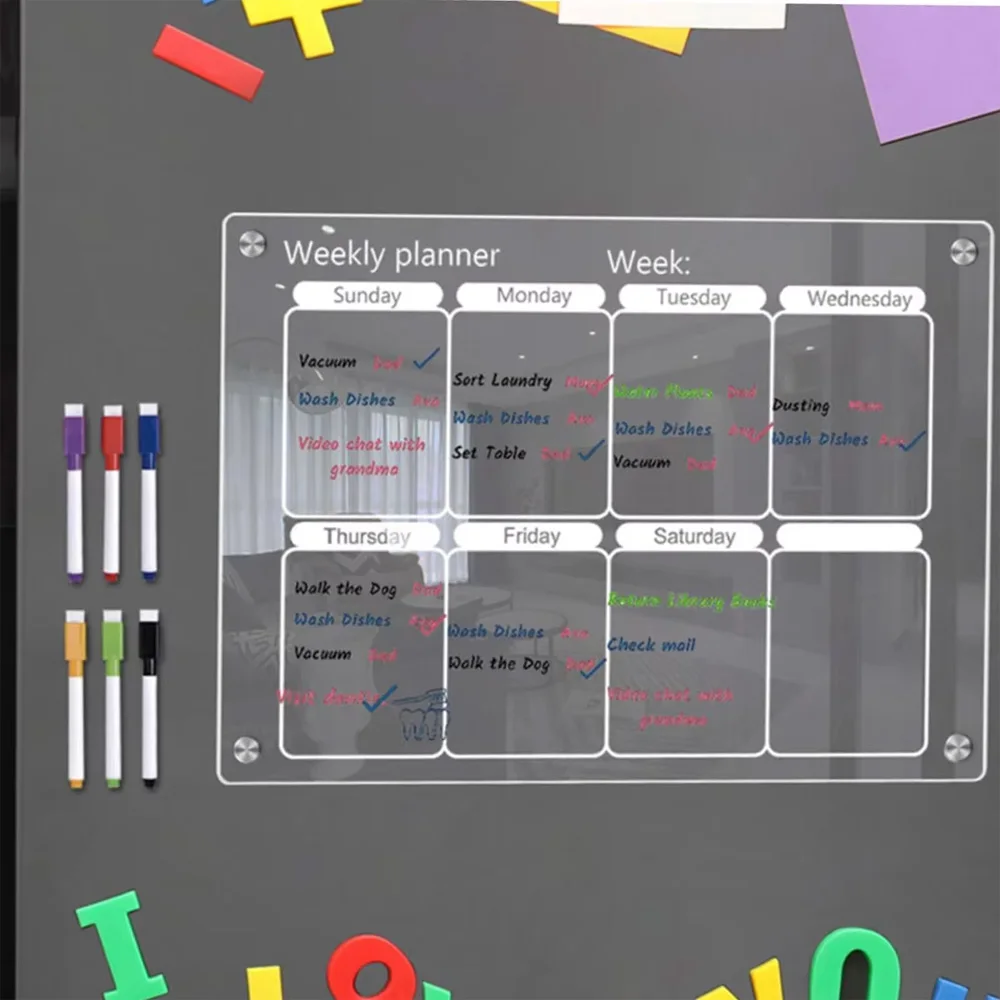 Weekly planner
Week:
Sunday
Vacuum Dad
Wash Dishes Ava
Video chat with
grandma
Monday
Sort Laundry
Wash Dishes Ava
Set Table Dad
Tuesday
Water Flowers Dad
Wash Dishes
Vacuum Dad
Wednesday
Dusting Mom
Wash Dishes
Thursday
Walk the Dog Dad
Wash Dishes
Vacuum Dad
Visit
Friday
Wash Dishes Ava
Walk the Dog Dad
Saturday
Return Library Books
Check mail
Video chat with
grandma